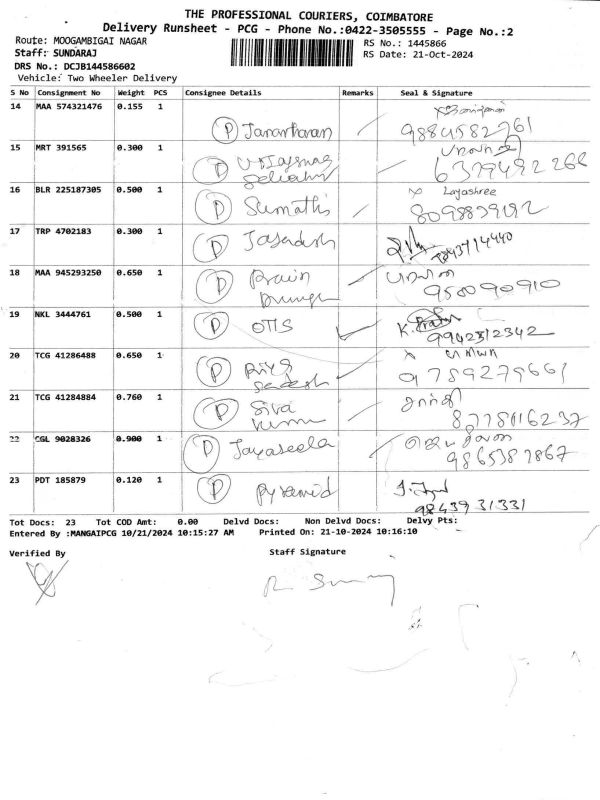 THE PROFESSIONAL COURIERS, COIMBATORE
Delivery Runsheet - PCG - Phone No.:0422-3505555 - Page No.:2
Route: MOOGAMBIGAI NAGAR
RS No.: 1445866
Staff: SUNDARAJ
RS Date: 21-Oct-2024
DRS No.: DCJB144586602
Vehicle: Two Wheeler Delivery
S No Consignment No Weight PCS Consignee Details Remarks Seal & Signature
14 MAA 574321476 0.155 1 P Janartharan
15 MRT 391565 0.300 1 P
6379492268
16 BLR 225187305 0.500 1 P Sumathi Layashree
8098839192
17 TRP 4702183 0.300 1 P
18 MAA 945293250 0.650 1 P
950090910
19 NKL 3444761 0.500 1 P OTIS
9942312342
20 TCG 41286488 0.650 1 P Priya
9789279661
21 TCG 41284884 0.760 1 P Siva
Kumar
8778116237
22 CGL 9028326 0.900 1 P Jayaseela
9865387867
23 PDT 185879 0.120 1 P Pyramid
9843931331
Tot Docs: 23 Tot COD Amt: 0.00 Delvd Docs: Non Delvd Docs: Delvy Pts:
Entered By :MANGAIPCG 10/21/2024 10:15:27 AM Printed On: 21-10-2024 10:16:10
Verified By Staff Signature